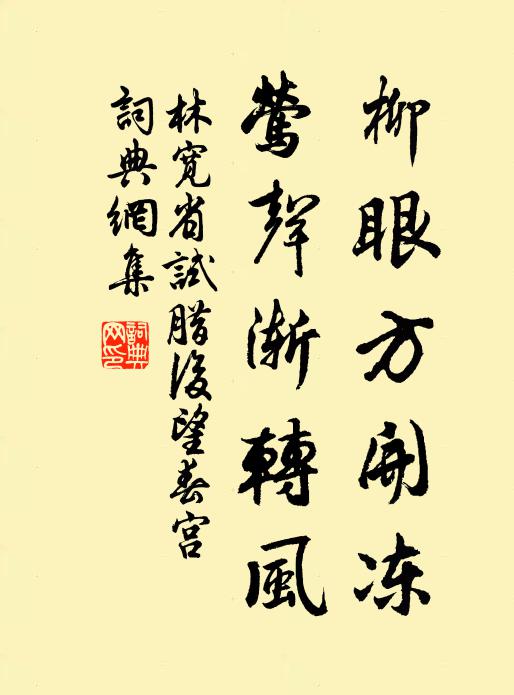 柳眼方開冻
鶯聲漸轉風
林寬省試腊後望春宫
詞典網集
詞典網印